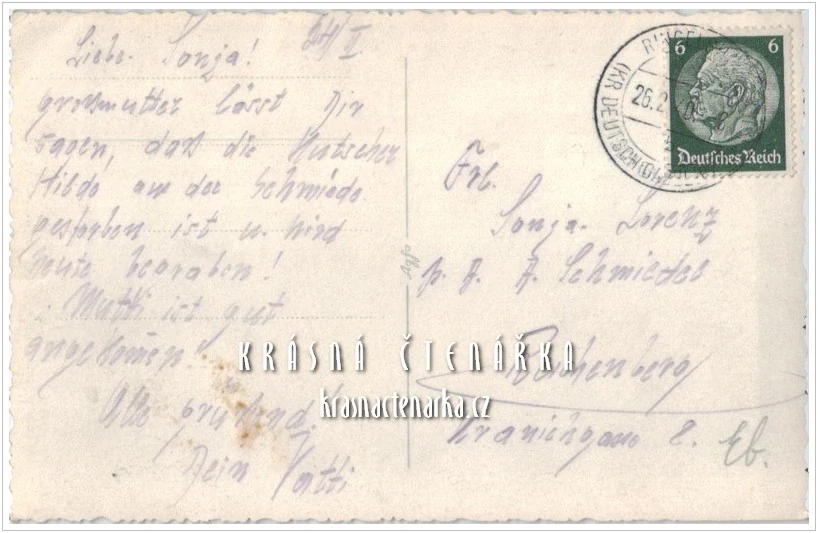 Liebe Sonja! 24/II
Grossmutter lässt Dir
sagen, dass die Kutscher
Hilde an der Schmiede
gestorben ist u. wird
heute begraben!
Mutti ist gut
angekomen!
Alle grüssend
Dein Vatti
Frl.
Sonja Lorenz
p. A. A. Schmiedel
Reichenberg
8.
Eb.
6 6
Deutsches Reich
26.2
(KR DEUTSCH
KRÁSNÁ ČTENÁŘKA
krasnactenarka.cz